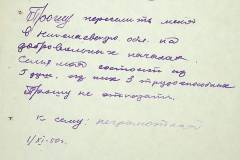 Прошу переселить меня
в Николаевскую обл. на
добровольных началах.
Семья моя состоит из
5 душ, из них 3 трудоспособных
Прошу не отказать.
к сему: неграмотная
1/XI-50г.